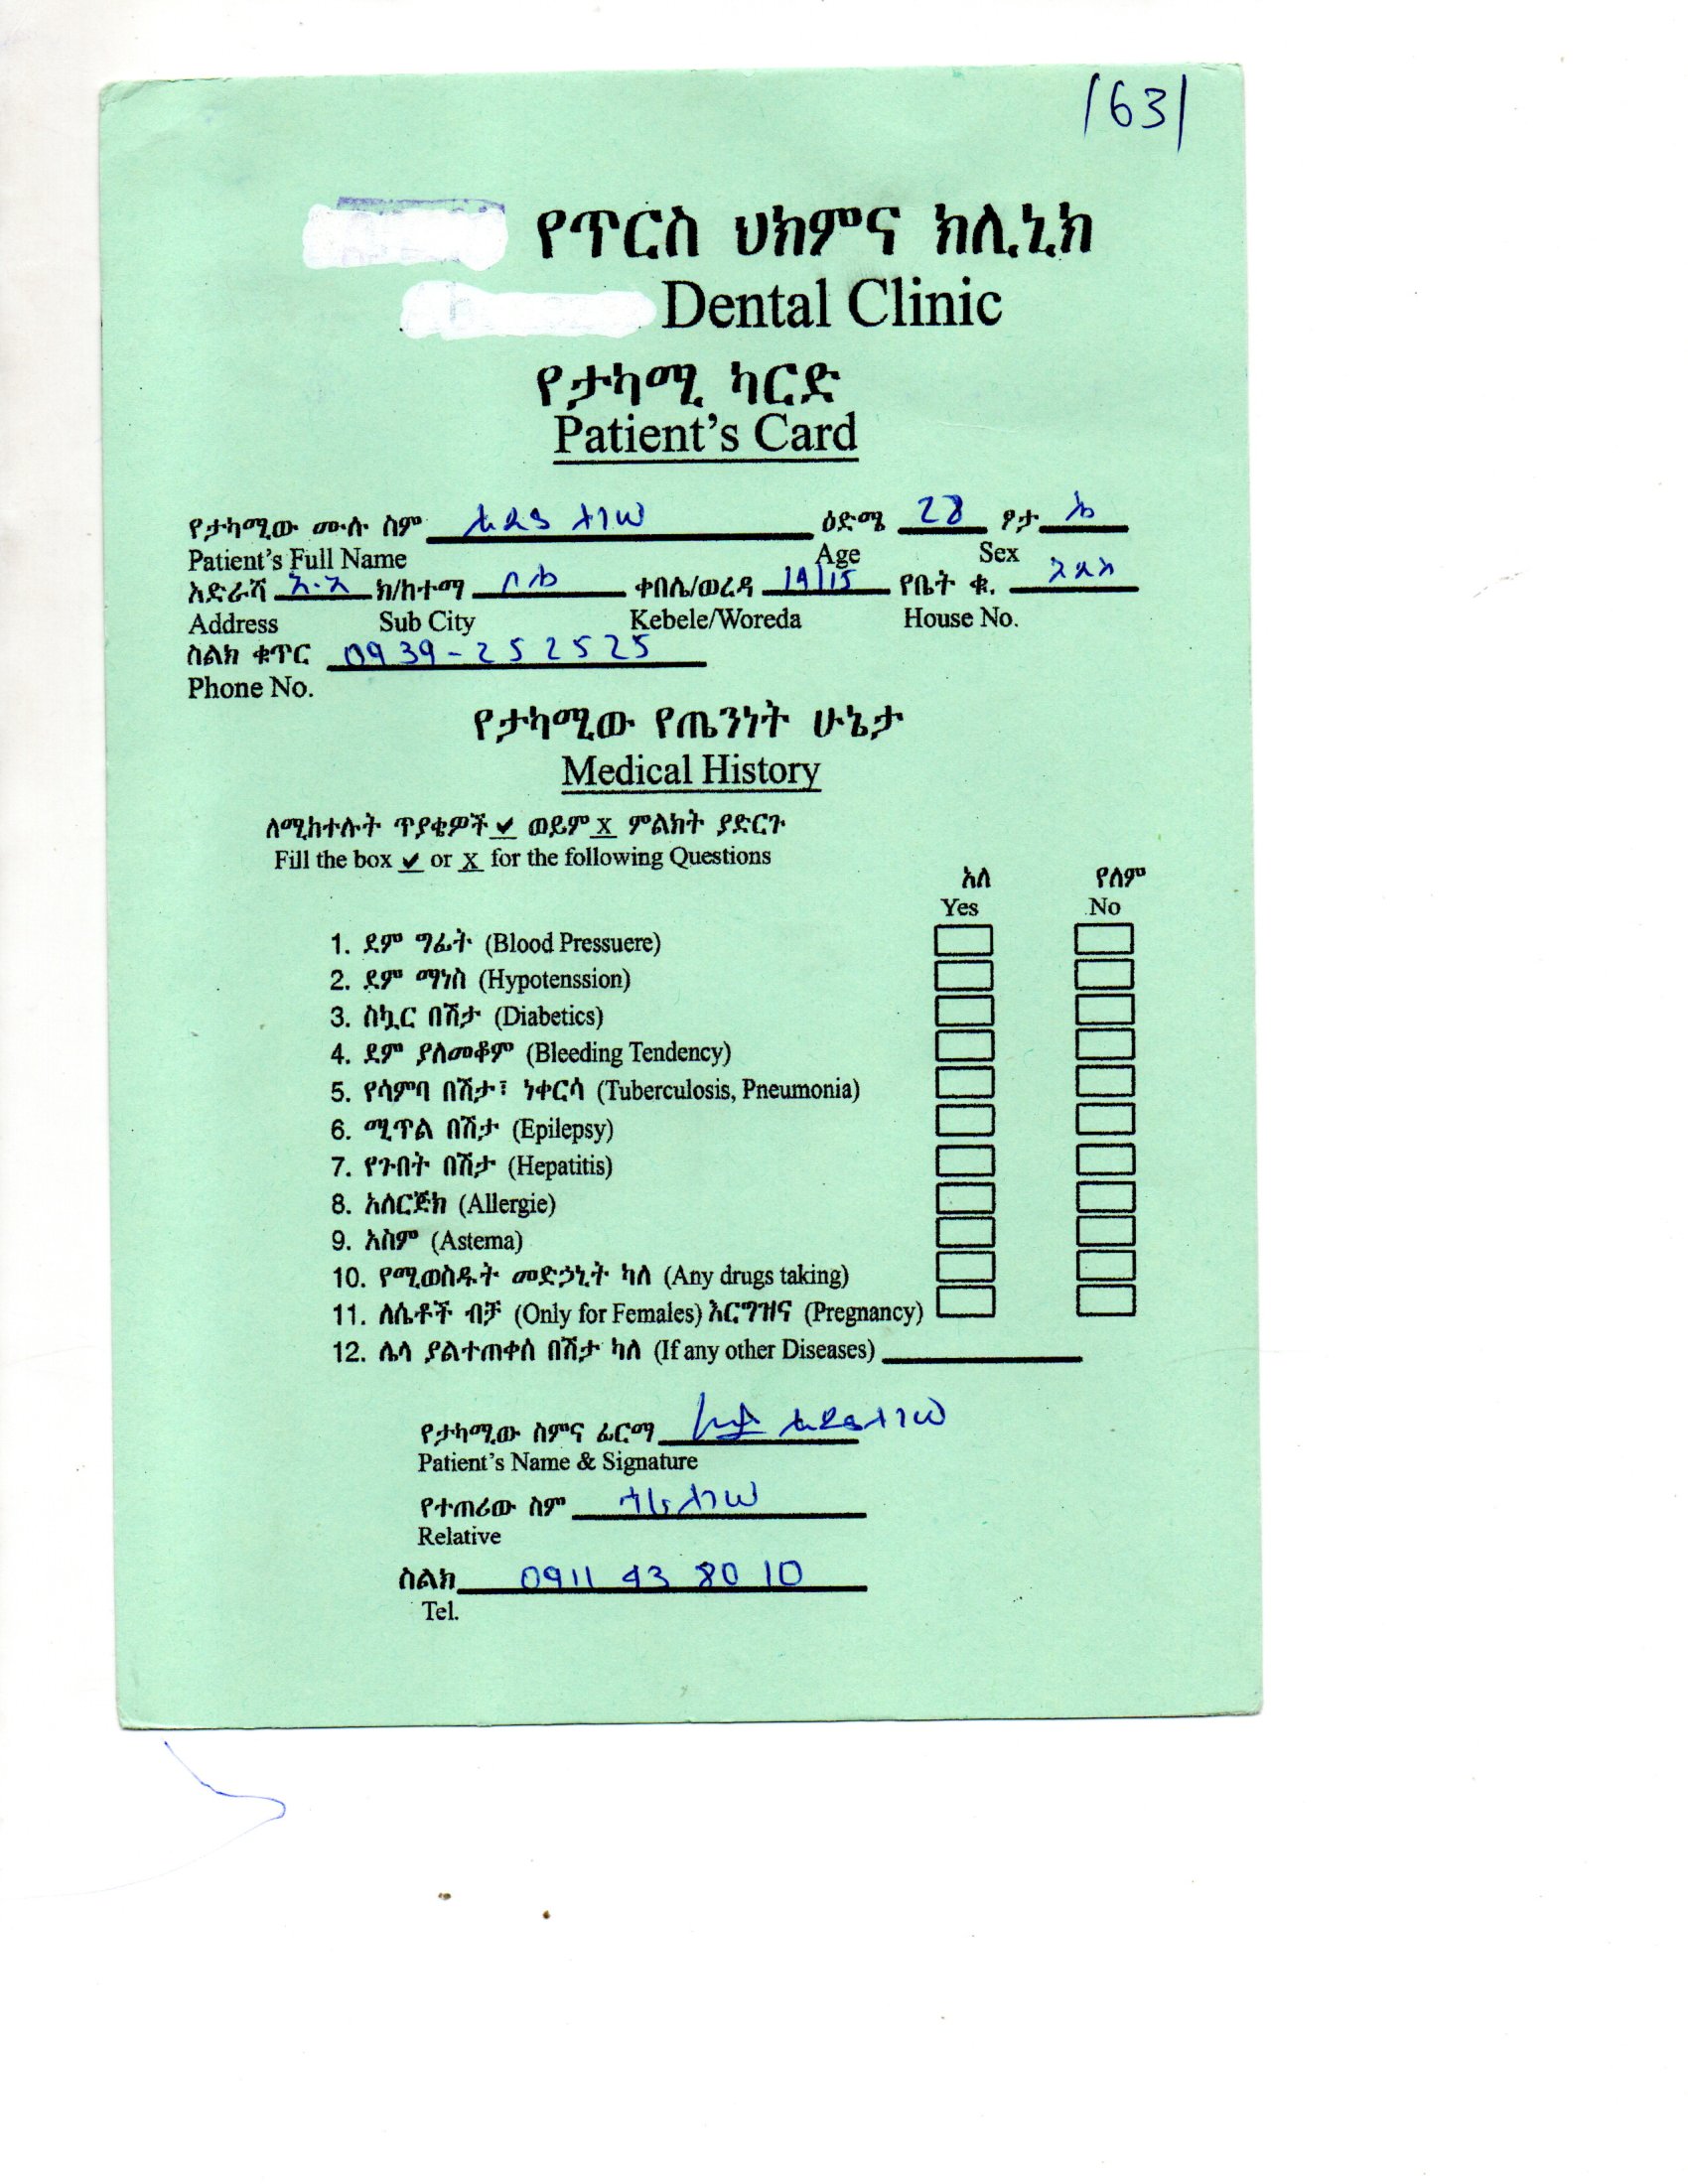 1631
የጥርስ ህክምና ክሊኒክ
Dental Clinic
የታካሚ ካርድ
Patient's Card
የታካሚው ሙሉ ስም ዕድሜ 28 ፆታ
Patient's Full Name Age Sex
አድራሻ አ.አ ክ/ከተማ ቦሌ ቀበሌ/ወረዳ 14/15 የቤት ቁ. አዲስ
Address Sub City Kebele/Woreda House No.
ስልክ ቁጥር 0939-252525
Phone No.
የታካሚው የጤንነት ሁኔታ
Medical History
ለሚከተሉት ጥያቄዎች ✔ ወይም X ምልክት ያድርጉ
Fill the box ✔ or X for the following Questions
አለ የለም
Yes No
1. ደም ግፊት (Blood Pressuere)
2. ደም ማነስ (Hypotenssion)
3. ስኳር በሽታ (Diabetics)
4. ደም ያለመቆም (Bleeding Tendency)
5. የሳምባ በሽታ፣ ነቀርሳ (Tuberculosis, Pneumonia)
6. ሚጥል በሽታ (Epilepsy)
7. የጉበት በሽታ (Hepatitis)
8. አለርጅክ (Allergie)
9. አስም (Astema)
10. የሚወስዱት መድኃኒት ካለ (Any drugs taking)
11. ለሴቶች ብቻ (Only for Females) እርግዝና (Pregnancy)
12. ሌላ ያልተጠቀሰ በሽታ ካለ (If any other Diseases)
የታካሚው ስምና ፊርማ
Patient's Name & Signature
የተጠሪው ስም
Relative
ስልክ 0911 43 80 10
Tel.